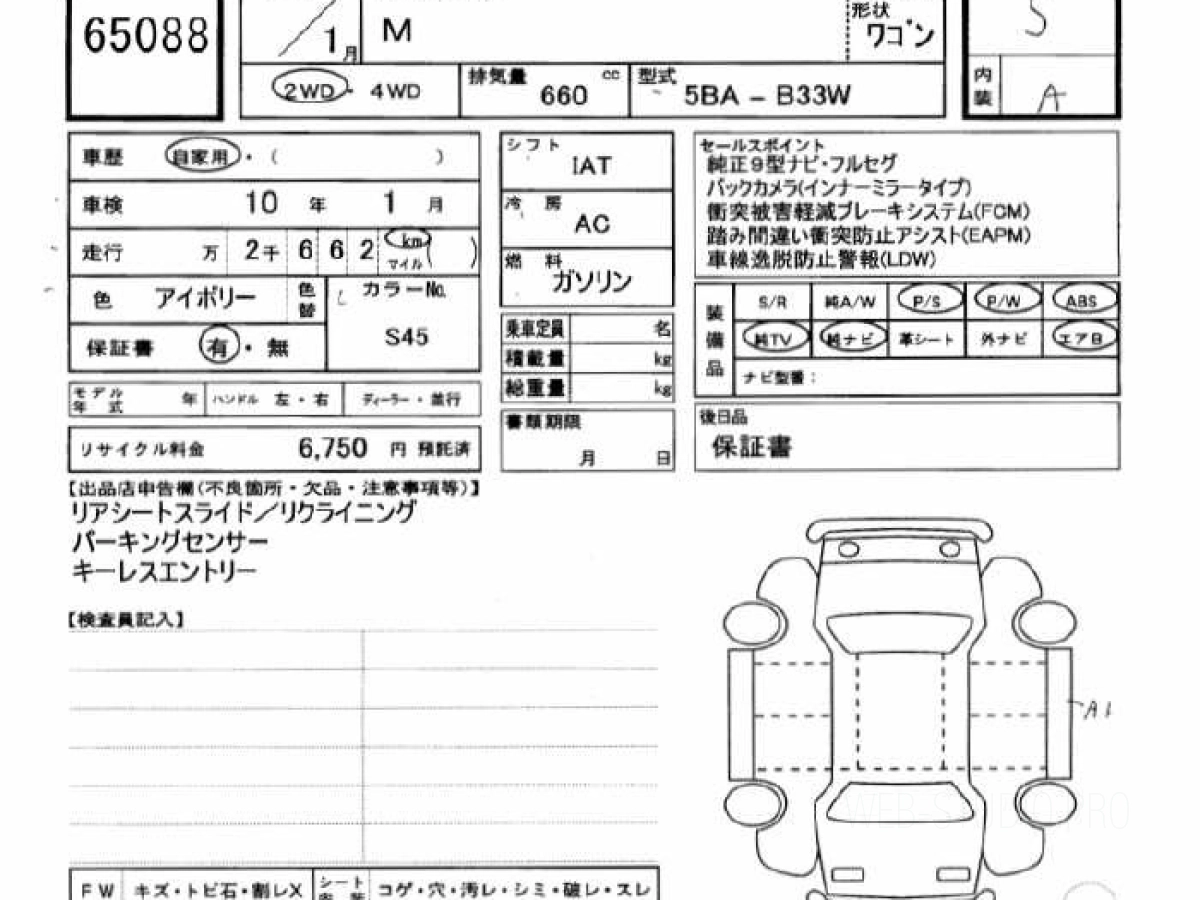 65088
1月
M
形状
ワゴン
S
2WD・4WD
排気量
cc
660
型式
5BA - B33W
内装
A
車歴 自家用・( )
車検 10年 1月
走行 万 2千 6 6 2 km マイル ( )
色 アイボリー 色替
カラーNo.
S45
保証書 有・無
モデル年式 年 ハンドル 左・右 ディーラー・並行
リサイクル料金 6,750 円 預託済
シフト
IAT
冷房
AC
燃料
ガソリン
乗車定員 名
積載量 kg
総重量 kg
書類期限
月 日
セールスポイント
純正9型ナビ・フルセグ
バックカメラ(インナーミラータイプ)
衝突被害軽減ブレーキシステム(FCM)
踏み間違い衝突防止アシスト(EAPM)
車線逸脱防止警報(LDW)
装備品
S/R 純A/W P/S P/W ABS
純TV 純ナビ 革シート 外ナビ エアB
ナビ型番:
後日品
保証書
【出品店申告欄(不良箇所・欠品・注意事項等)】
リアシートスライド/リクライニング
パーキングセンサー
キーレスエントリー
【検査員記入】
A1
FW キズ・トビ石・割レX シート内装 コゲ・穴・汚レ・シミ・破レ・スレ